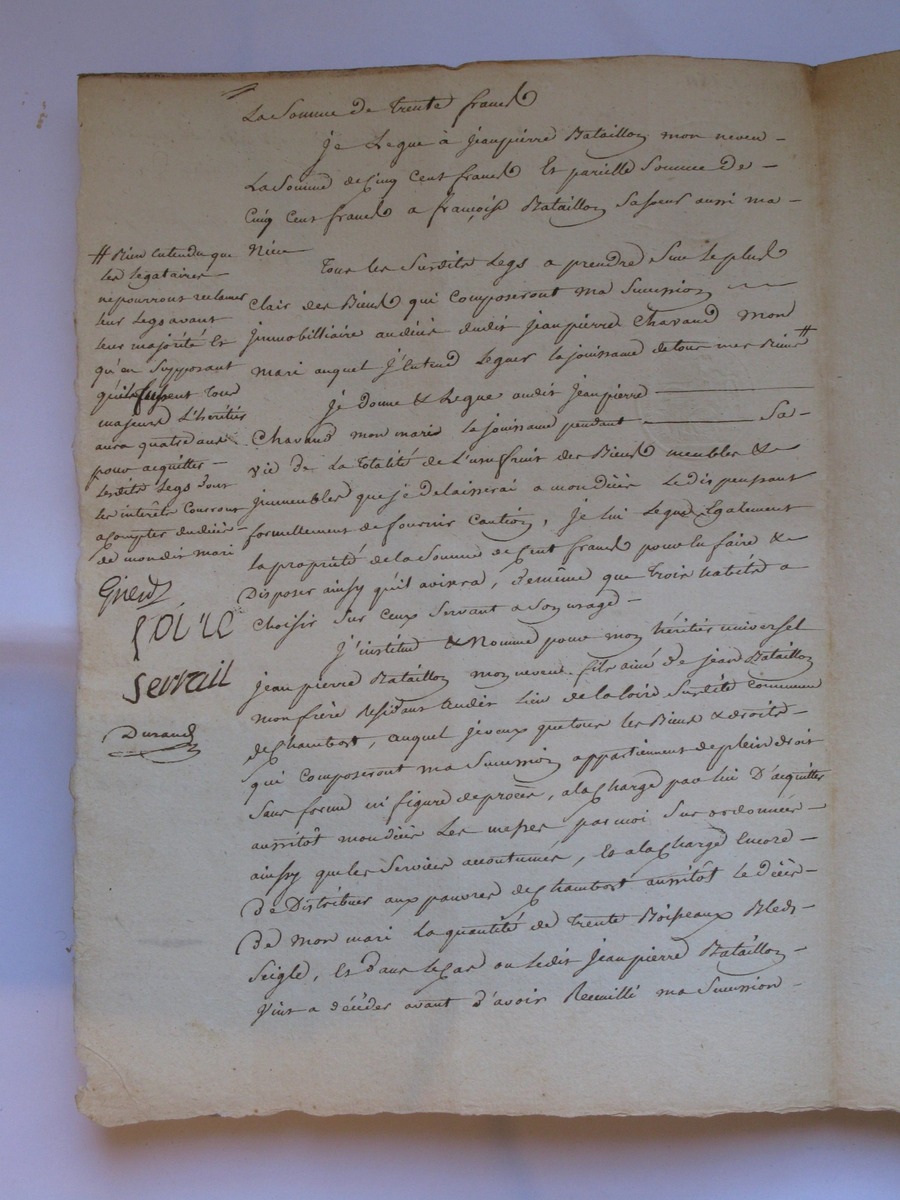 La Somme de trente francs
Je Legue à Jeanpierre Bataillon mon neveu -
La Somme de Cinq Cent francs Et pareille Somme de -
Cinq Cent francs a françoise Bataillon Sa soeur aussi ma -
Niece
Tous les Susdits Legs a prendre Sur le plus
clair des Biens qui composeront ma Succession
immobilliaire au déces dudit Jeanpierre Chavand mon
mari auquel J'entend Leguer la jouissance de tous mes Biens #
Je donne & Legue audit Jeanpierre
Chavand mon mari la jouissance pendant Sa -
vie de La Totalité de L'usufruit des Biens meubles &
immeubles que je delaisserai a mon déces Le dispensant
formellement de fournir Caution, Je lui Legue Egalement
la propriété de la Somme de Cent francs pour En faire &
Disposer ainsy qu'il avisera, de même que trois habits a
Choisir Sur Ceux Servant a Son usage -
J'institue & Nomme pour mon héritier universel
Jean pierre Bataillon mon neveu fils ainé de Jean Bataillon
mon frère Résidant audit Lieu de la loire Susdite Commune
de Chambost, auquel je veux que tous les Biens & droits -
qui Composeront ma Succession appartiennent de plein droit
Sans forme ni figure de procès, a la Charge par lui D'acquitter
aussitôt mon déces Les messes par moi Sus ordonnées -
ainsy que les Services accoutumés, Et a la Charge Encore -
De Distribuer aux pauvres de Chambost aussitôt le déces -
De mon mari La quantité de trente Boisseaux Bled -
Seigle, Et dans le Cas ou Ledit Jeanpierre Bataillon -
Vint a décéder avant d'avoir Receuilli ma Succession -
# Bien Entendu que
les légataires
ne pourront reclamer
leur Legs avant
leur majorité Et
qu'en Supposant
qu'ils fussent Tous
majeurs L'héritier
aura quatre ans
pour acquitter -
Lesdits Legs dont
les interêts Courront
a Compter du déces
de mon dit mari
LOIRE
Servail
Durand